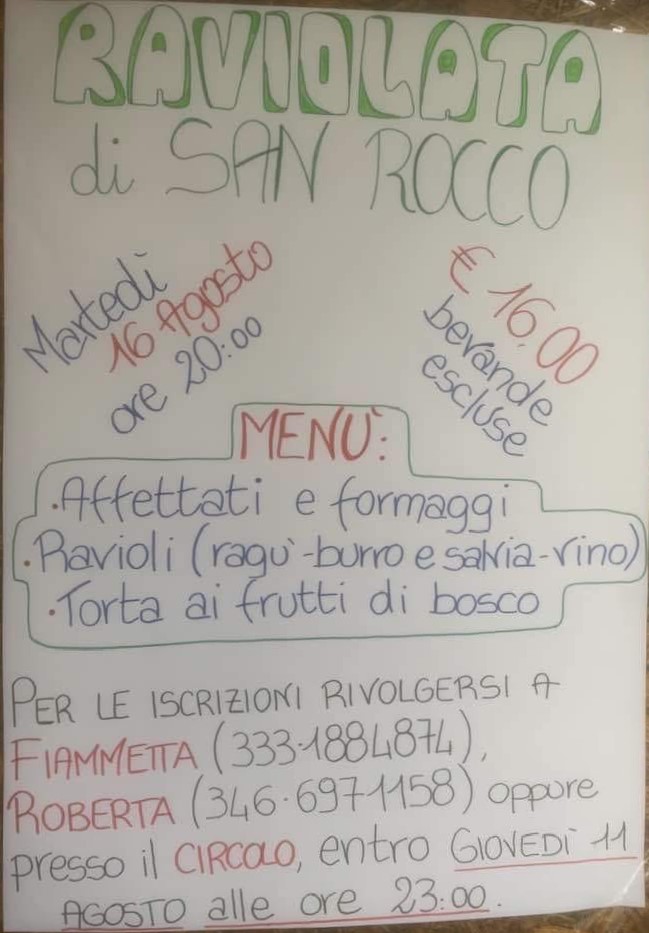 RAVIOLATA
di SAN ROCCO
Martedì
16 Agosto
ore 20:00
€ 16,00
bevande
escluse
MENÙ:
·Affettati e formaggi
·Ravioli (ragù-burro e salvia-vino)
·Torta ai frutti di bosco
PER LE ISCRIZIONI RIVOLGERSI A
FIAMMETTA (333·1884874),
ROBERTA (346·6971158) oppure
presso il CIRCOLO, entro GIOVEDÌ 11
AGOSTO alle ore 23:00.